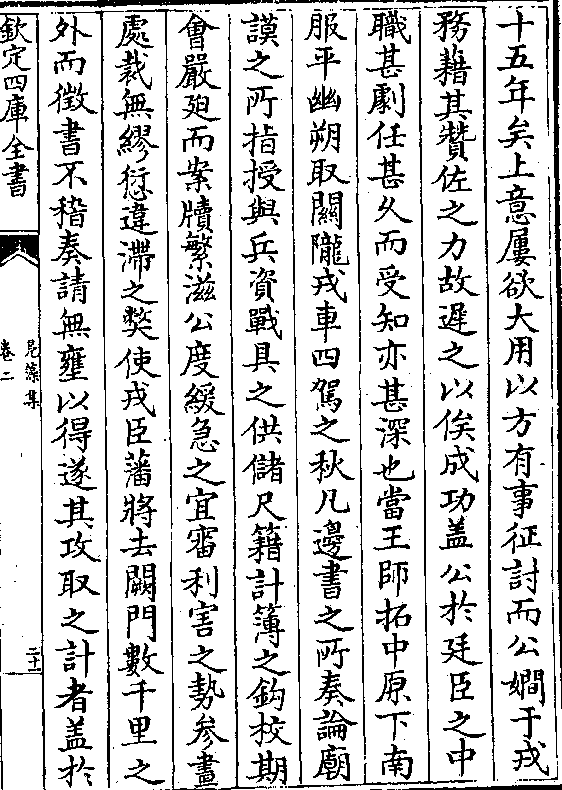 十五年矣上意屢欲大用以方有事征討而公嫺于戎
務藉其贊佐之力故遲之以俟成功盖公於廷臣之中
職甚劇任甚久而受知亦甚深也當王師拓中原下南
服平幽朔取關隴戎車四駕之秋凡邊書之所奏論廟
謨之所指授與兵資戰具之供儲尺籍計簿之鈎校期
會嚴廹而案牘繁滋公度緩急之宜審利害之勢參畫
處裁無繆愆違滯之獘使戎臣藩將去闕門數千里之
外而徵書不稽奏請無壅以得遂其攻取之計者盖於
欽定四庫全書
鳧藻集
卷二
二十一